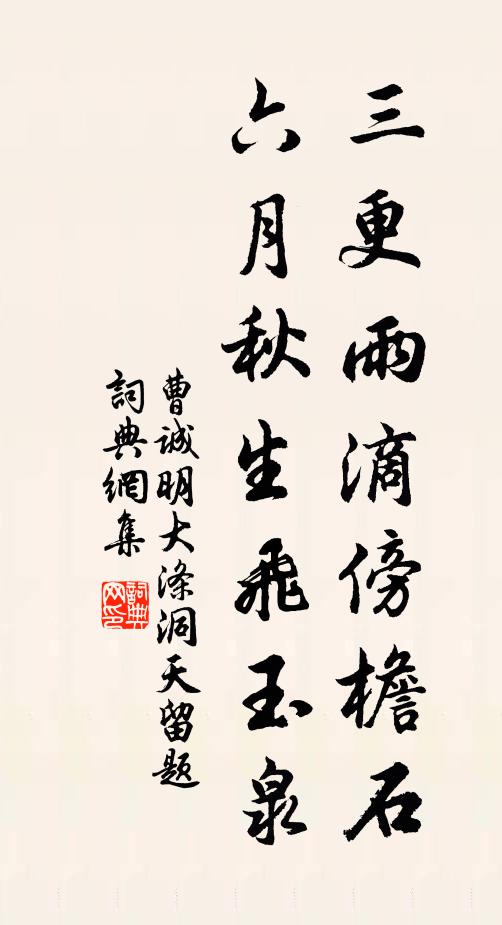 三更雨滴傍檐石
六月秋生飛玉泉
曹誠明大滌洞天留題
詞典網集
詞典網印